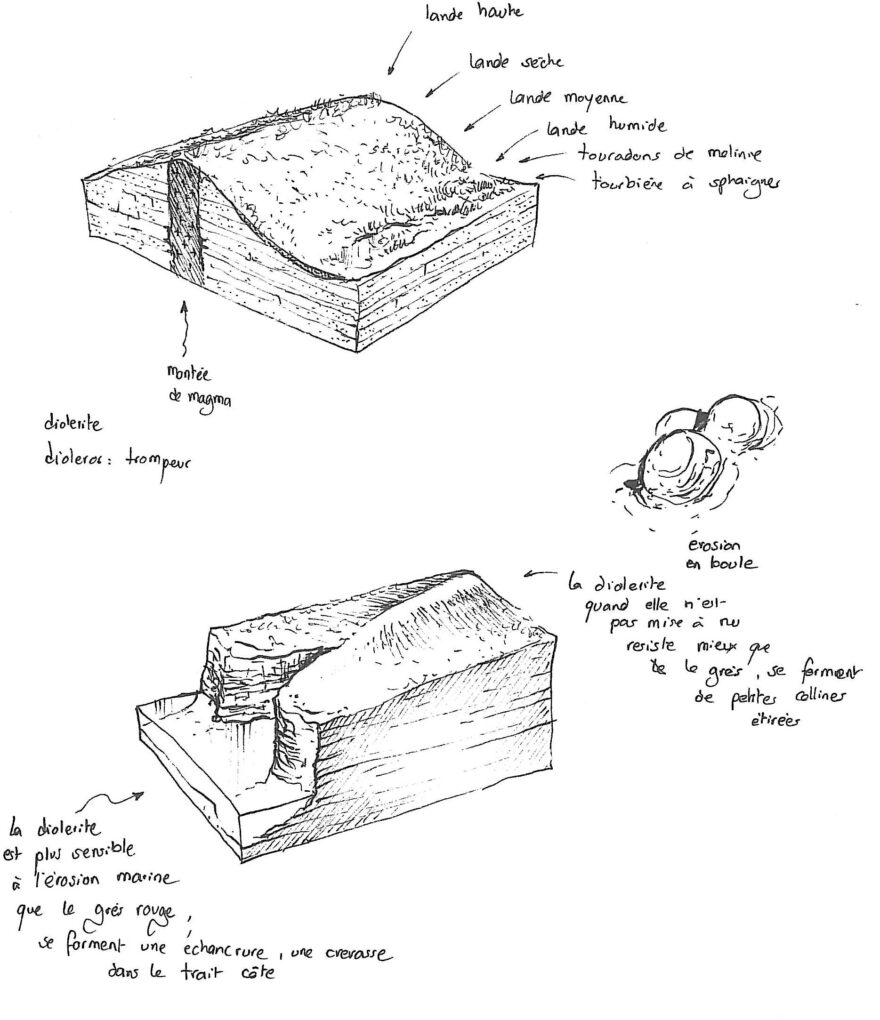 lande haute
lande sèche
lande moyenne
lande humide
touradons de molinie
tourbière à sphaignes
montée
de magma
diolerite
dioleros : trompeur
érosion
en boule
la diolerite
quand elle n'est
pas mise à nu
resiste mieux que
de le grès, se forment
de petites collines
étirées
la diolerite
est plus sensible
à l'érosion marine
que le grès rouge,
se forment une échancrure, une crevasse
dans le trait côte